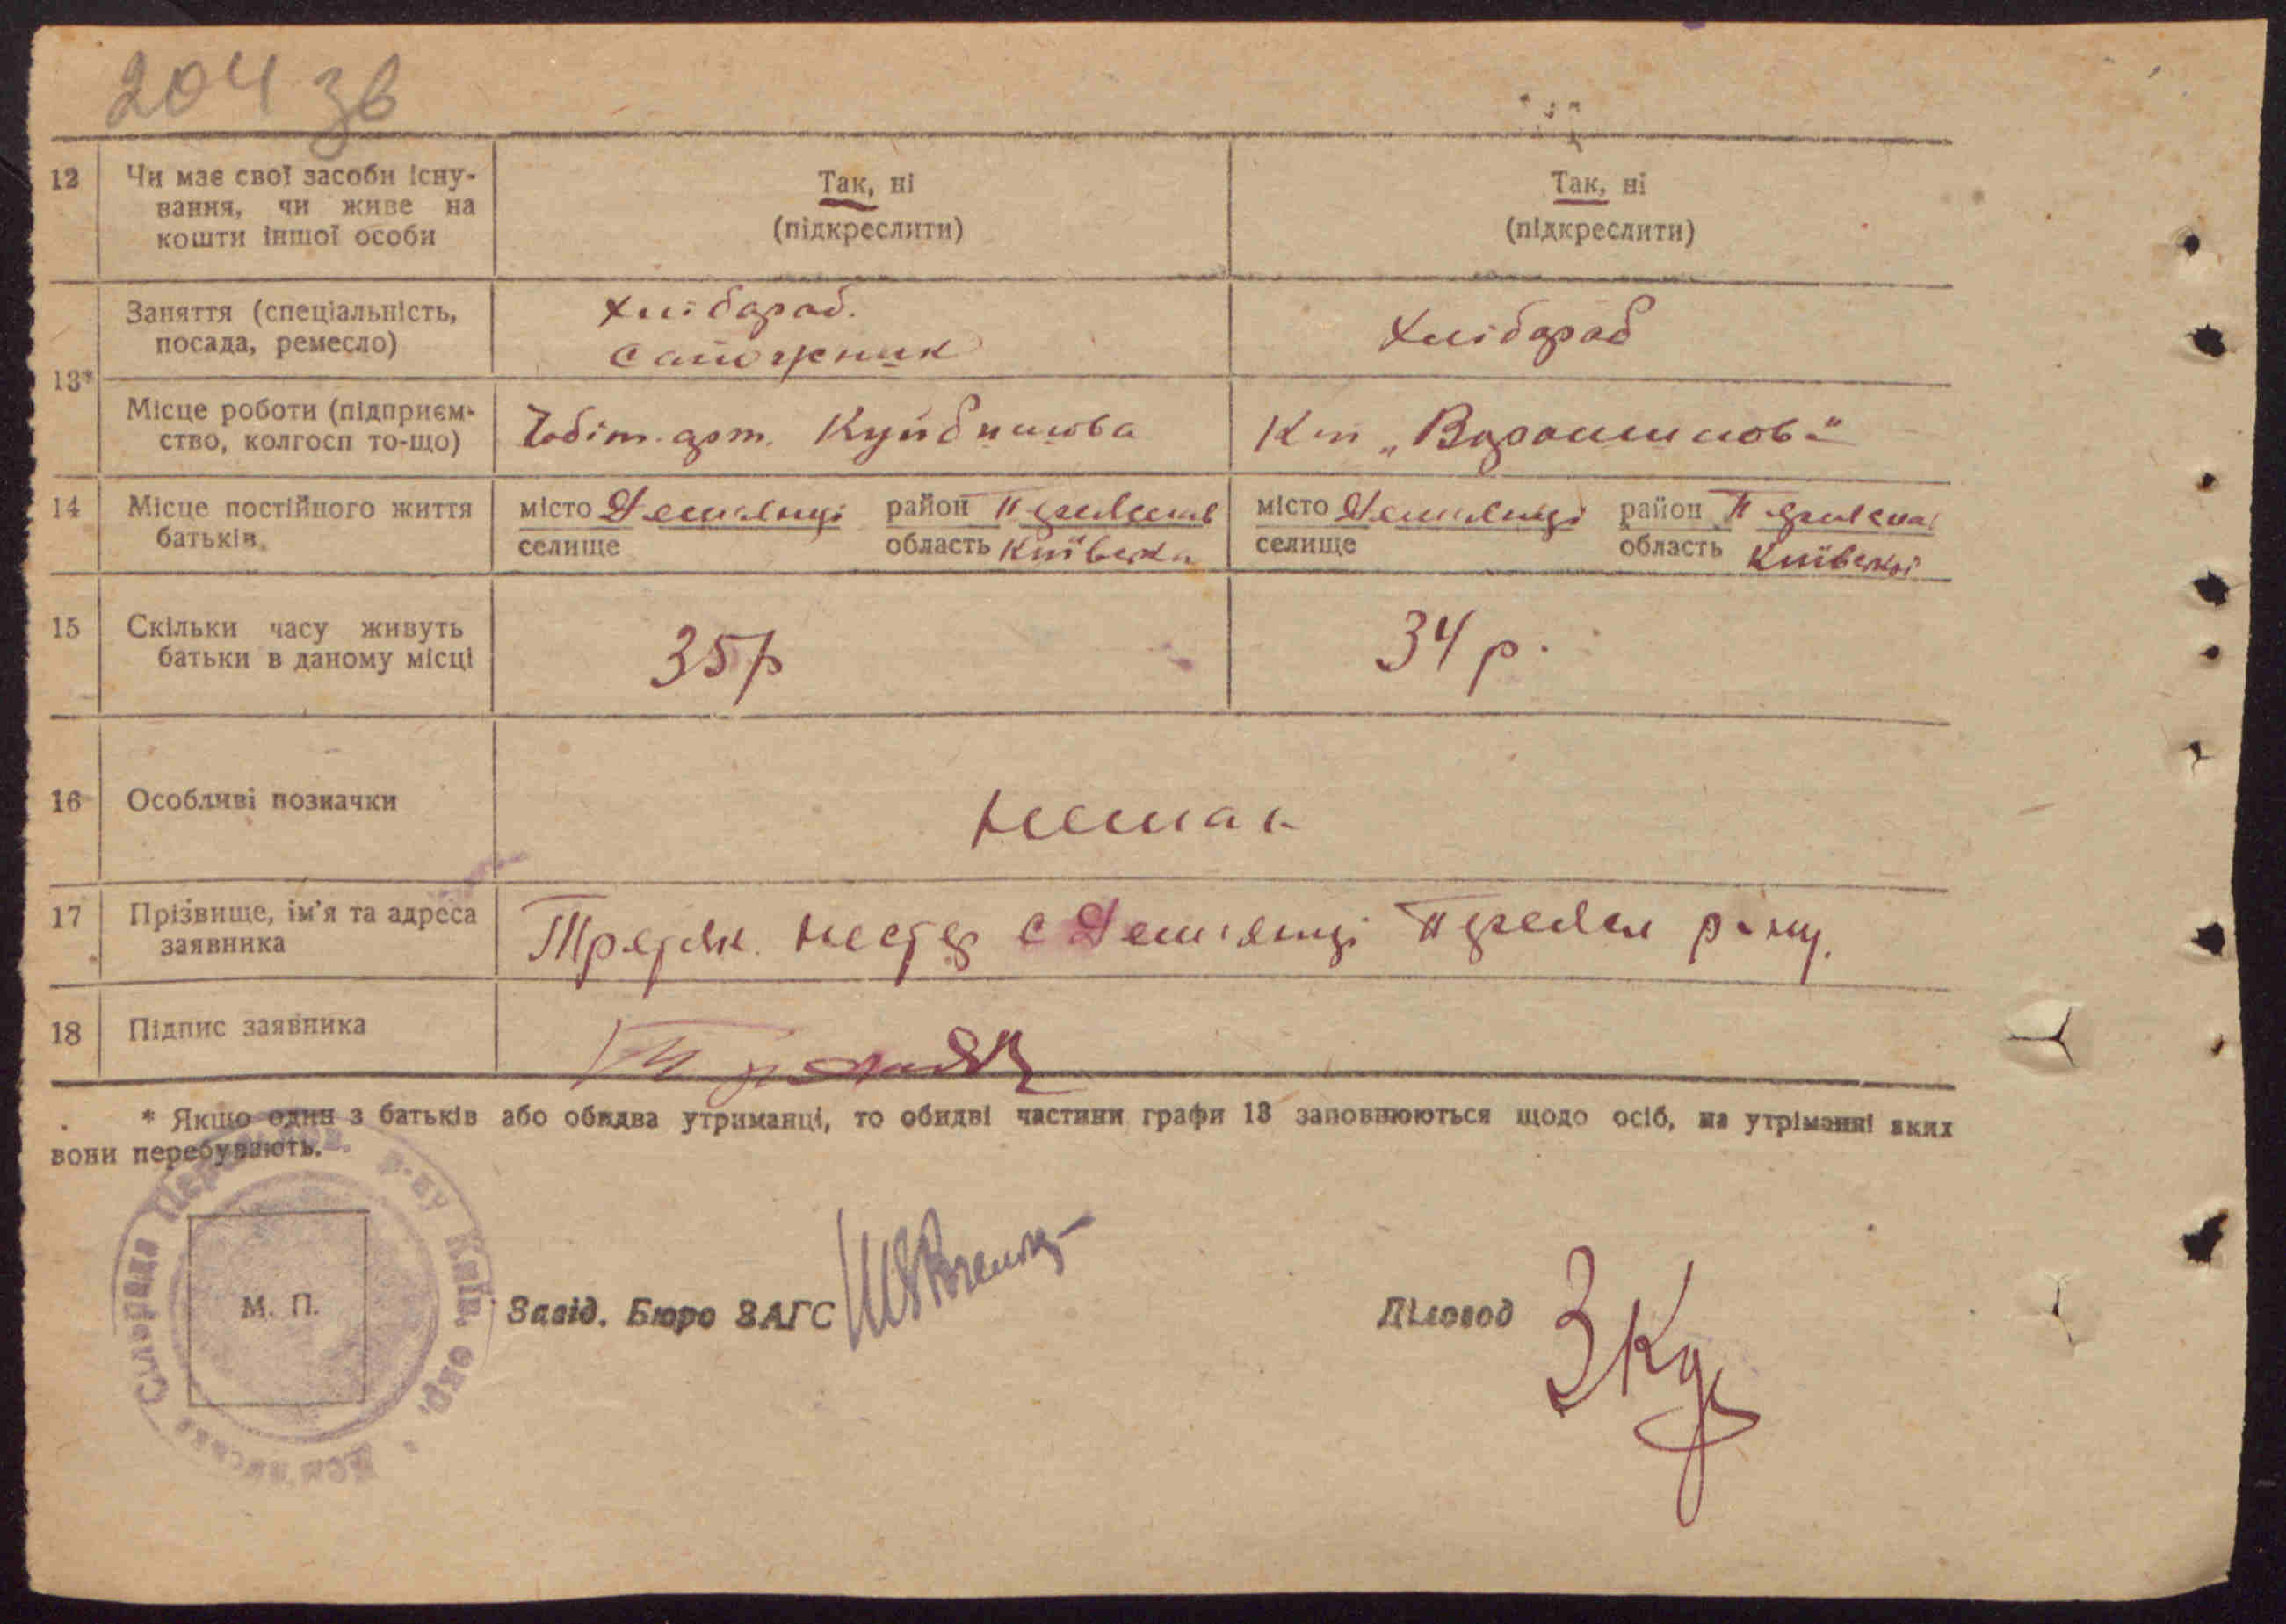 204 зв
12 Чи має свої засоби існу-
вання, чи живе на
кошти іншої особи
Так, ні
(підкреслити)
Так, ні
(підкреслити)
13*
Заняття (спеціальність,
посада, ремесло)
Хлібороб.
Сапожник
Хлібороб
Місце роботи (підприєм-
ство, колгосп то-що)
Чобіт. арт. Куйбишова
Кл „Ворошилова"
14 Місце постійного життя
батьків
місто Демьянці район
селище область Київська
місто Демьянці район
селище область Київської
15 Скільки часу живуть
батьки в даному місці
35 р
34 р.
16 Особливі позначки
Немає
17 Прізвище, ім'я та адреса
заявника
Нестер с Демьянці р-ну.
18 Підпис заявника
* Якщо один з батьків або обидва утриманці, то обидві частини графи 13 заповнюються щодо осіб, на утріманні яких
вони перебувають.
Сільрада р-ну Київ. окр.
М. П.
Завід. Бюро ЗАГС
Діловод